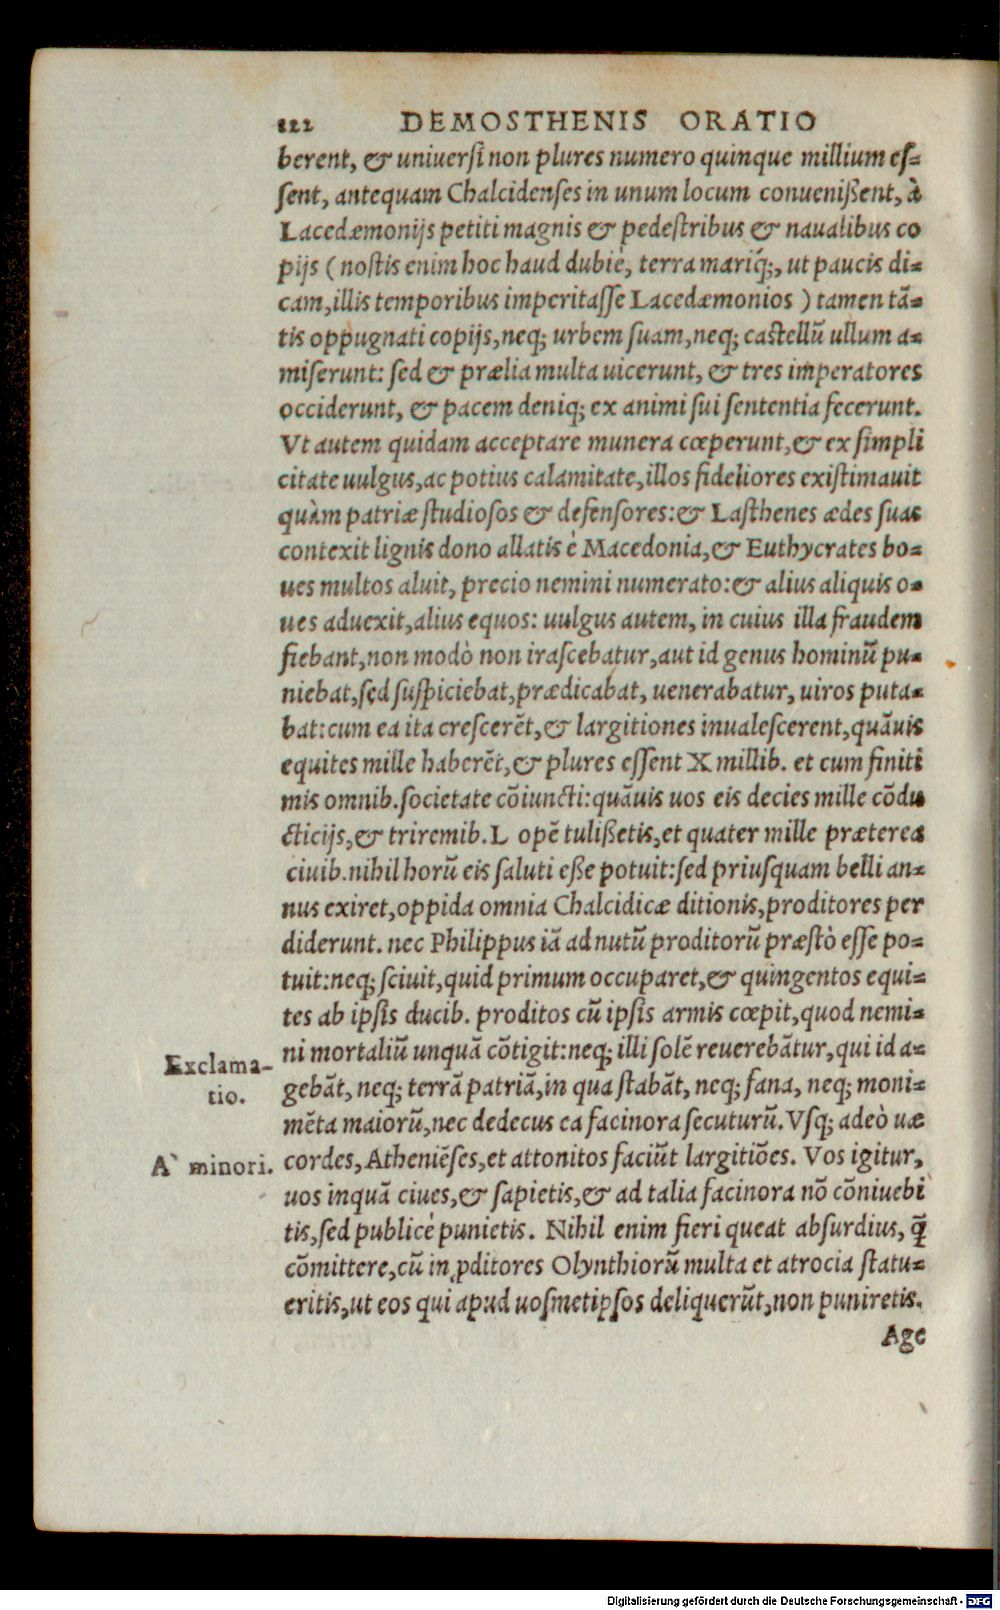 122 DEMOSTHENIS ORATIO
berent, & uniuersi non plures numero quinque millium es-
sent, antequam Chalcidenses in unum locum conuenißent, à
Lacedæmonijs petiti magnis & pedestribus & naualibus co
pijs (nostis enim hoc haud dubiè, terra mariq́;, ut paucis di-
cam, illis temporibus imperitasse Lacedæmonios) tamen tã-
tis oppugnati copijs, neq; urbem suam, neq; castellũ ullum a-
miserunt: sed & prælia multa uicerunt, & tres imperatores
occiderunt, & pacem deniq; ex animi sui sententia fecerunt.
Vt autem quidam acceptare munera cœperunt, & ex simpli
citate uulgus, ac potius calamitate, illos fideliores existimauit
quàm patriæ studiosos & defensores: & Lasthenes ædes suas
contexit lignis dono allatis è Macedonia, & Euthycrates bo-
ues multos aluit, precio nemini numerato: & alius aliquis o-
ues aduexit, alius equos: uulgus autem, in cuius illa fraudem
fiebant, non modò non irascebatur, aut id genus hominũ pu-
niebat, sed suspiciebat, prædicabat, uenerabatur, uiros puta-
bat: cum ea ita crescerẽt, & largitiones inualescerent, quãuis
equites mille haberẽt, & plures essent X millib. et cum finiti
mis omnib. societate cõiuncti: quãuis uos eis decies mille cõdu
cticijs, & triremib. L opẽ tulißetis, et quater mille præterea
ciuib. nihil horũ eis saluti eße potuit: sed priusquam belli an-
nus exiret, oppida omnia Chalcidicæ ditionis, proditores per
diderunt. nec Philippus iã ad nutũ proditorũ præstò esse po-
tuit: neq; sciuit, quid primum occuparet, & quingentos equi-
tes ab ipsis ducib. proditos cũ ipsis armis cœpit, quod nemi-
ni mortaliũ unquã cõtigit: neq; illi solẽ reuerebãtur, qui id a-
Exclama-
tio.
gebãt, neq; terrã patriã, in qua stabãt, neq; fana, neq; moni-
mẽta maiorũ, nec dedecus ea facinora secuturũ. Vsq; adeò uæ
A` minori.
cordes, Atheniẽses, et attonitos faciũt largitiões. Vos igitur,
uos inquã ciues, & sapietis, & ad talia facinora nõ cõniuebi
tis, sed publicè punietis. Nihil enim fieri queat absurdius, q̃
cõmittere, cũ in ꝓditores Olynthiorũ multa et atrocia statu-
eritis, ut eos qui apud uosmetipsos deliquerũt, non puniretis.
Age
Digitalisierung gefördert durch die Deutsche Forschungsgemeinschaft - DFG